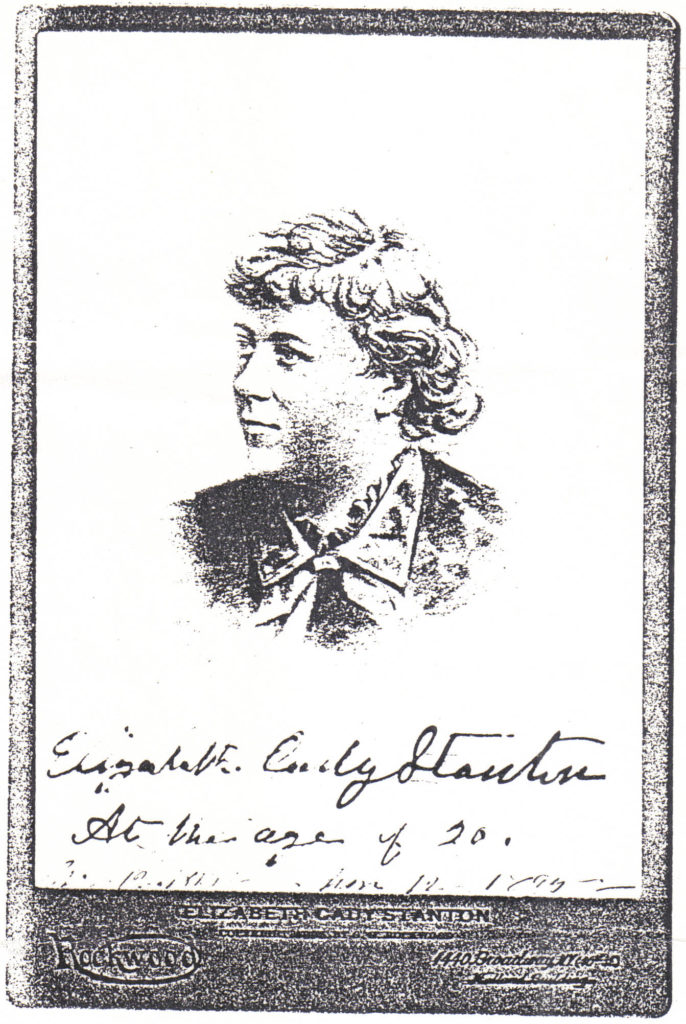 Elizabeth Cady Stanton
At the age of 20.
1895
ELIZABETH CADY STANTON
Rockwood
1440, Broadway, N.Y.